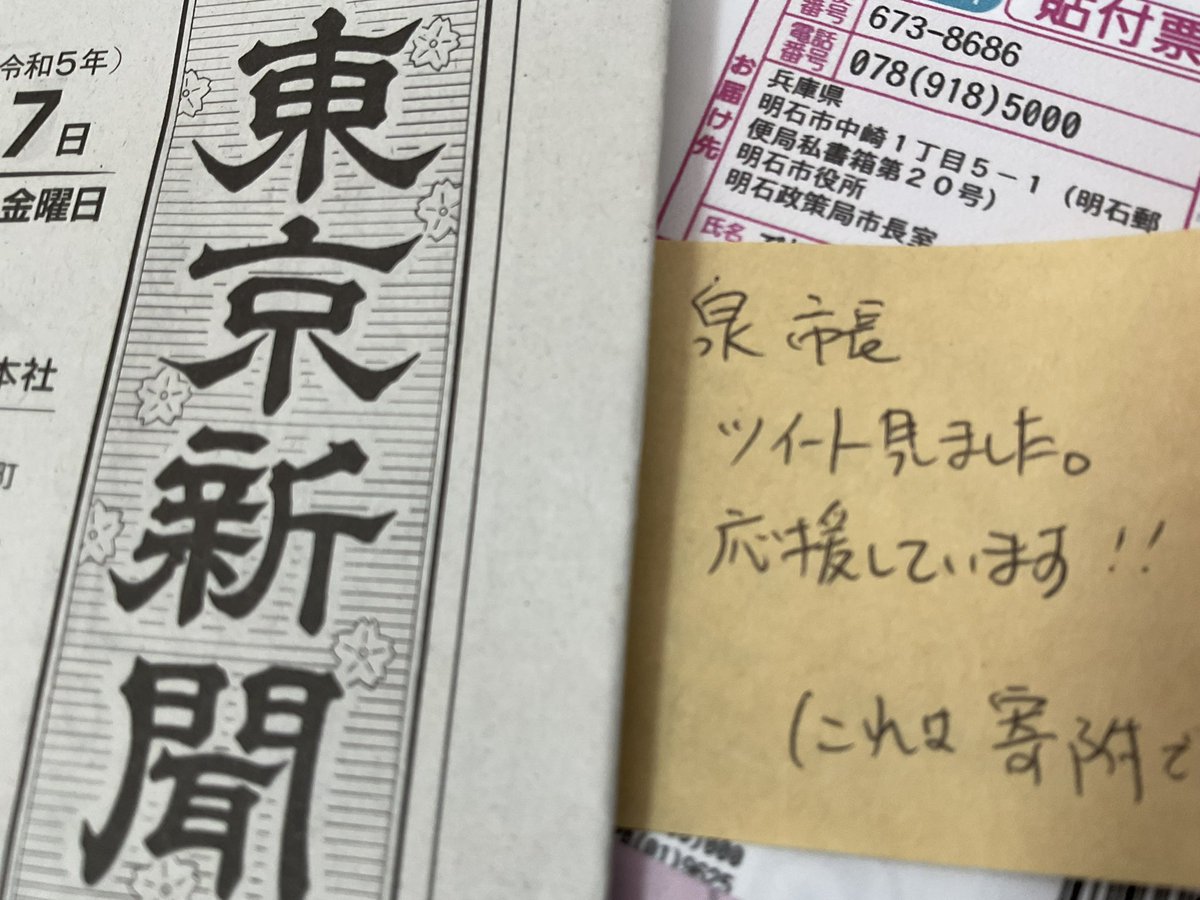 令和5年)
7日
金曜日
本社
町
東京新聞
貼付票
番号
673-8686
電話番号
078(918)5000
お届け先
兵庫県
明石市中崎1丁目5-1 (明石郵
便局私書箱第20号)
明石市役所
明石政策局市長室
氏名
泉 市長
ツイート見ました。
応援しています!!
(これは寄附で
(01)9625